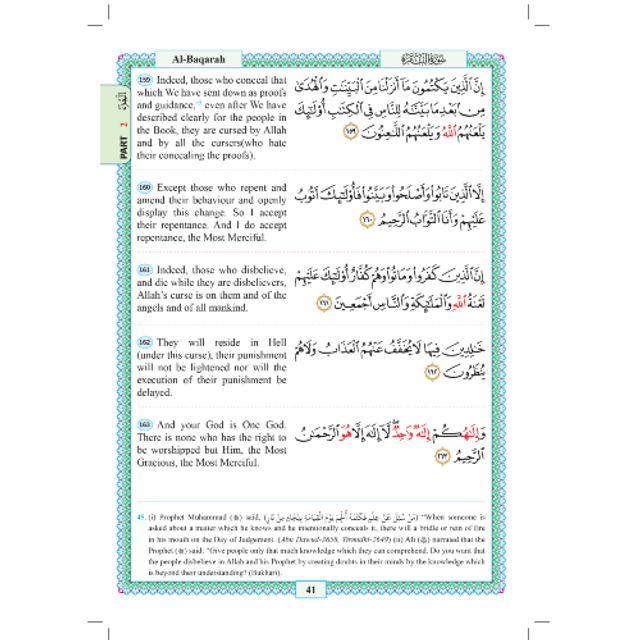 Al-Baqarah
سورة البقرة
البقرة
PART 2
159 Indeed, those who conceal that
which We have sent down as proofs
and guidance,45 even after We have
described clearly for the people in
the Book, they are cursed by Allah
and by all the cursers(who hate
their concealing the proofs).
إِنَّ ٱلَّذِينَ يَكْتُمُونَ مَآ أَنزَلْنَا مِنَ ٱلْبَيِّنَٰتِ وَٱلْهُدَىٰ
مِنۢ بَعْدِ مَا بَيَّنَّٰهُ لِلنَّاسِ فِى ٱلْكِتَٰبِ أُو۟لَٰٓئِكَ
يَلْعَنُهُمُ ٱللَّهُ وَيَلْعَنُهُمُ ٱللَّٰعِنُونَ ١٥٩
160 Except those who repent and
amend their behaviour and openly
display this change. So I accept
their repentance. And I do accept
repentance, the Most Merciful.
إِلَّا ٱلَّذِينَ تَابُوا۟ وَأَصْلَحُوا۟ وَبَيَّنُوا۟ فَأُو۟لَٰٓئِكَ أَتُوبُ
عَلَيْهِمْ وَأَنَا ٱلتَّوَّابُ ٱلرَّحِيمُ ١٦٠
161 Indeed, those who disbelieve,
and die while they are disbelievers,
Allah’s curse is on them and of the
angels and of all mankind.
إِنَّ ٱلَّذِينَ كَفَرُوا۟ وَمَاتُوا۟ وَهُمْ كُفَّارٌ أُو۟لَٰٓئِكَ عَلَيْهِمْ
لَعْنَةُ ٱللَّهِ وَٱلْمَلَٰٓئِكَةِ وَٱلنَّاسِ أَجْمَعِينَ ١٦١
162 They will reside in Hell
(under this curse), their punishment
will not be lightened nor will the
execution of their punishment be
delayed.
خَٰلِدِينَ فِيهَا لَا يُخَفَّفُ عَنْهُمُ ٱلْعَذَابُ وَلَا هُمْ
يُنظَرُونَ ١٦٢
163 And your God is One God.
There is none who has the right to
be worshipped but Him, the Most
Gracious, the Most Merciful.
وَإِلَٰهُكُمْ إِلَٰهٌ وَٰحِدٌ لَّآ إِلَٰهَ إِلَّا هُوَ ٱلرَّحْمَٰنُ
ٱلرَّحِيمُ ١٦٣
45. (i) Prophet Muhammad (ﷺ) said, (مَنْ سُئِلَ عَنْ عِلْمٍ فَكَتَمَهُ أُلْجِمَ يَوْمَ الْقِيَامَةِ بِلِجَامٍ مِنْ نَارٍ) “When someone is
asked about a matter which he knows and he intentionally conceals it, there will a bridle or rein of fire
in his mouth on the Day of Judgement. (Abu Dawud-3658, Tirmidhi-2649) (ii) Ali narrated that the
Prophet (ﷺ) said: “Give people only that much knowledge which they can comprehend. Do you want that
the people disbelieve in Allah and his Prophet by creating doubts in their minds by the knowledge which
is beyond their understanding? (Bukhari).
41